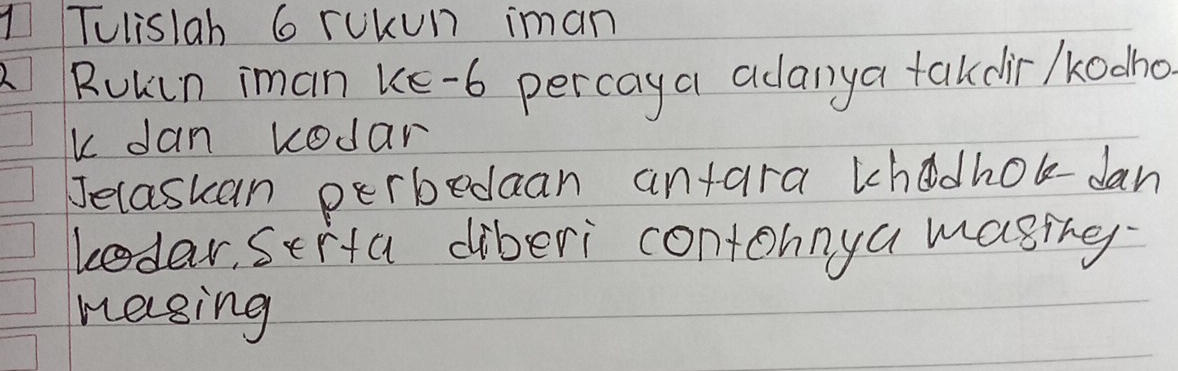 1 Tulislah 6 rukun iman
2 Rukun iman ke-6 percaya adanya takdir/kodho-
k dan kodar
Jelaskan perbedaan antara khodhok dan
kodar. Serta diberi contohnya masing-
masing